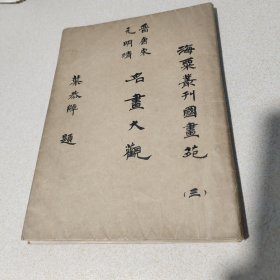 海粟叢刊國畫苑
(三)
晉唐宋
元明清
名畫大觀
葉恭綽
題